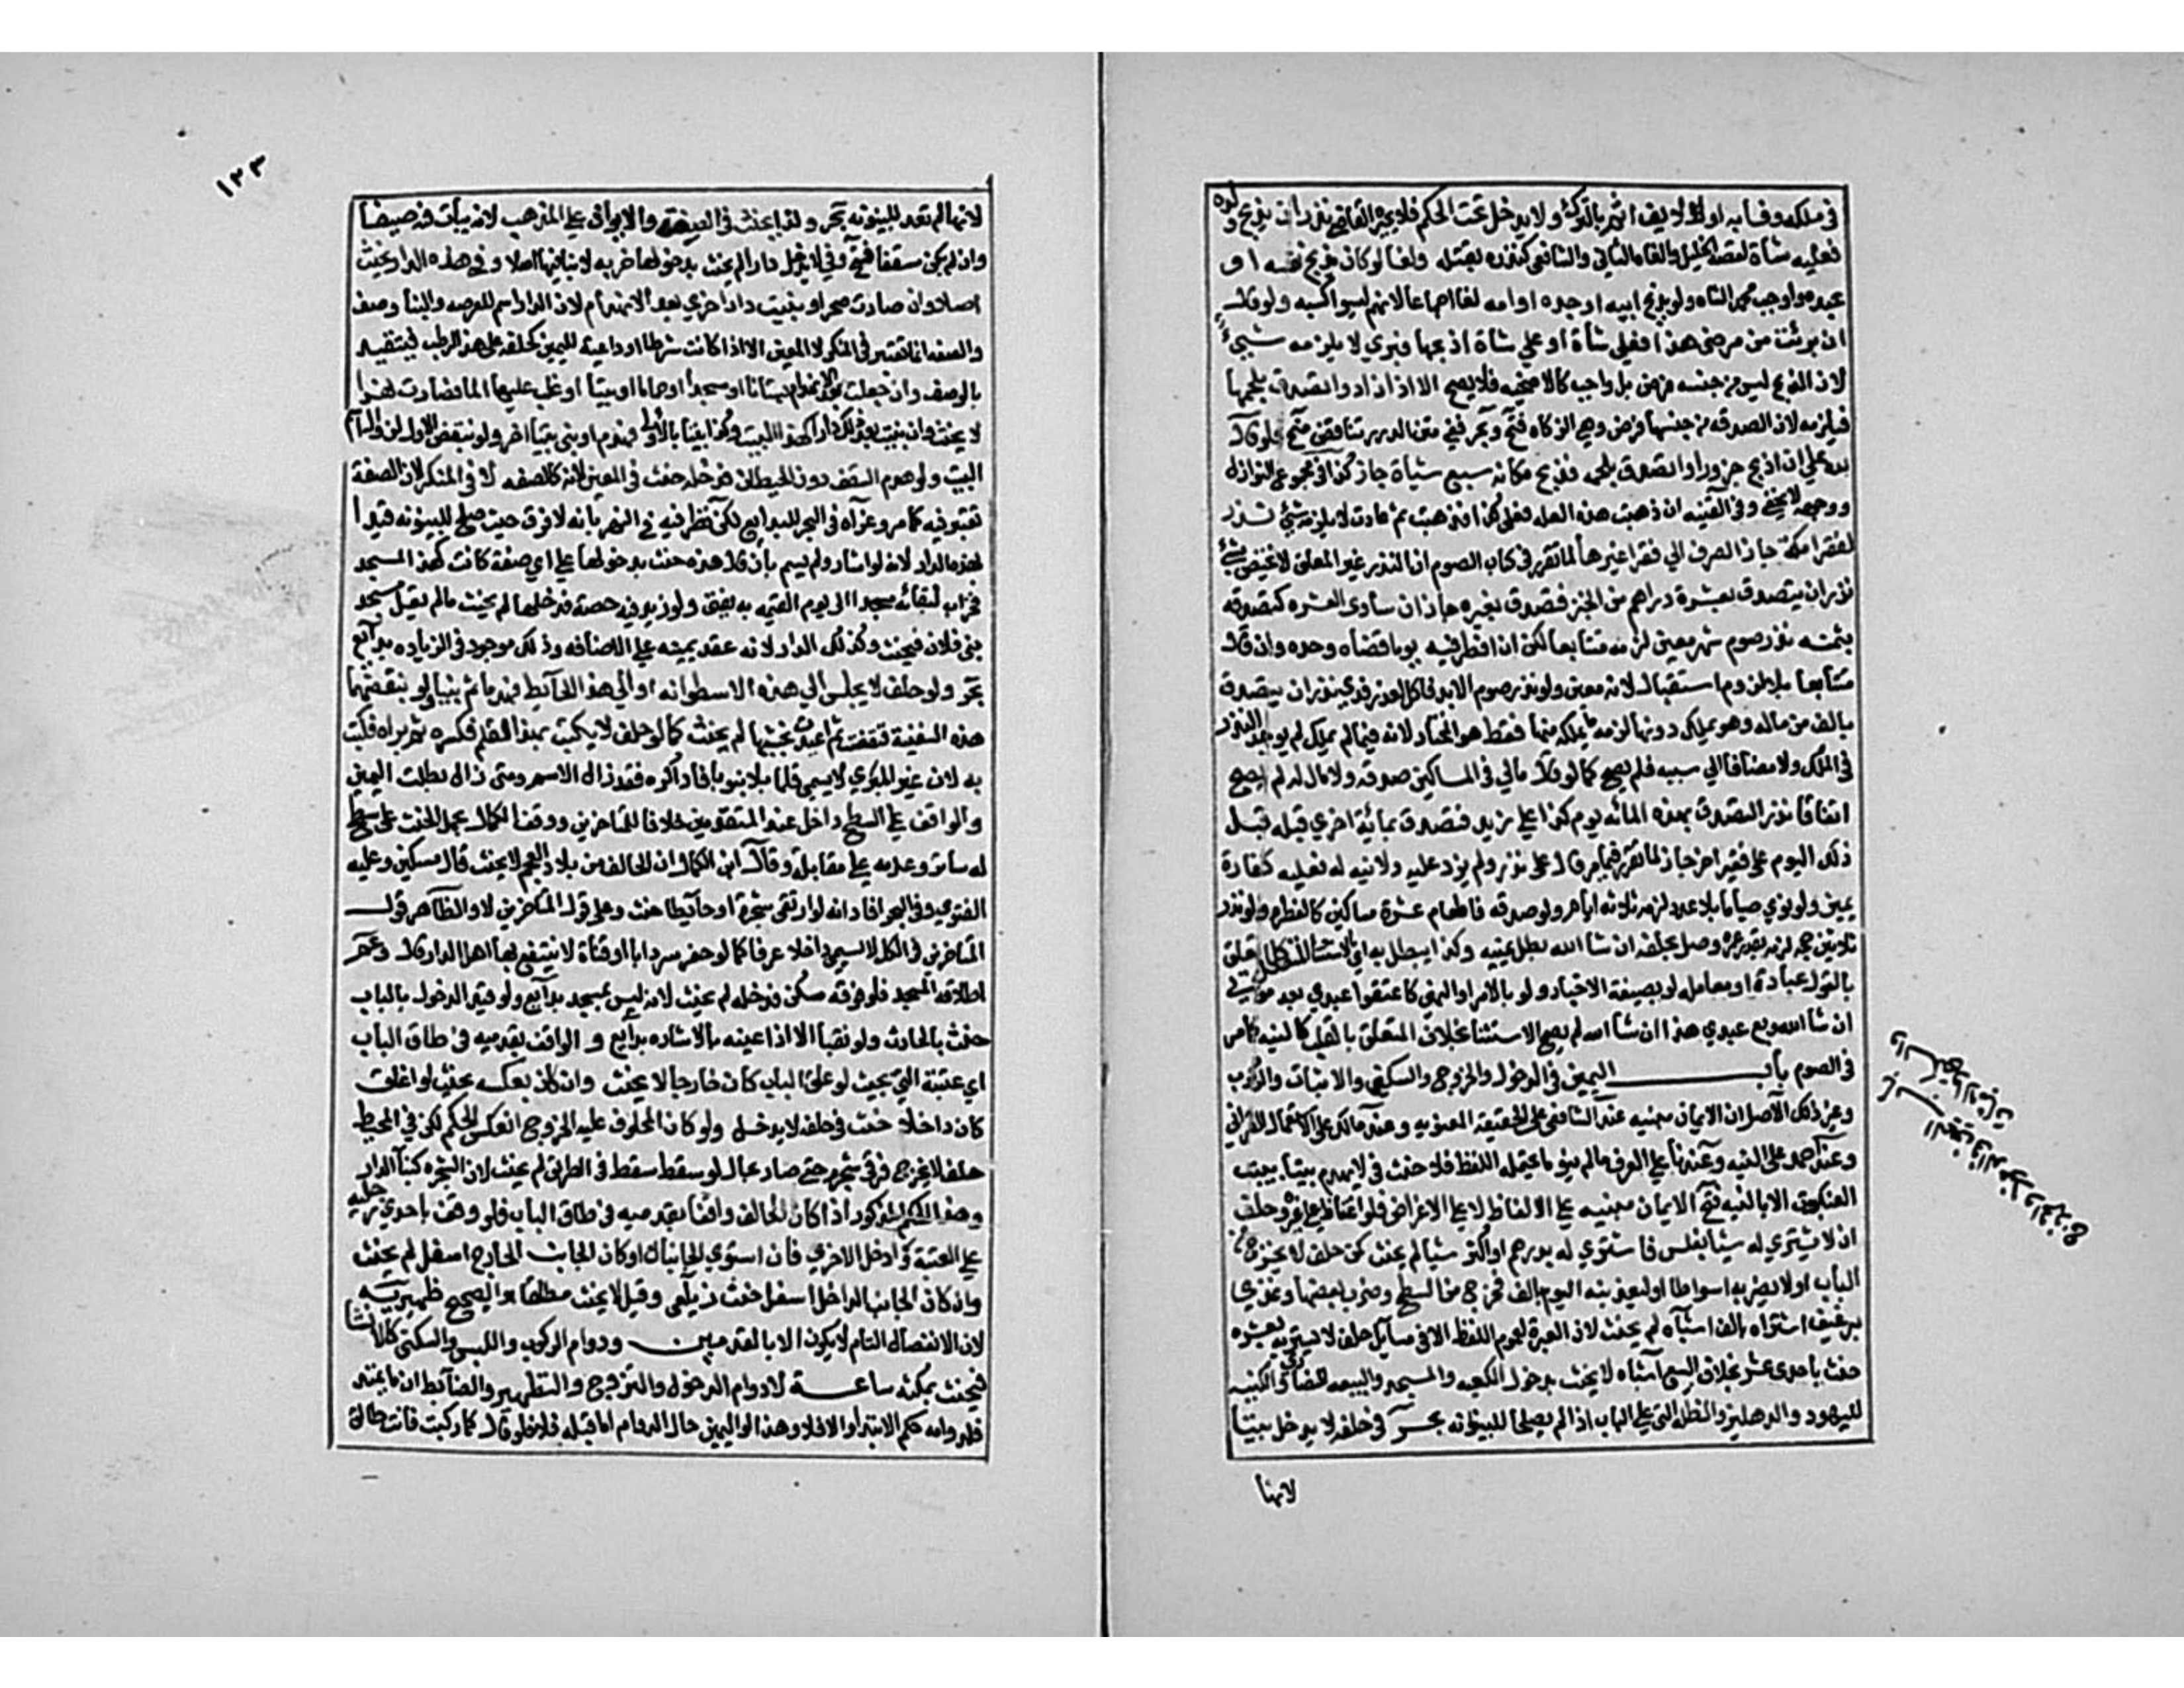 في ملكه وفا به اولا لا يف اثم بالترك ولا يدخل تحت الحكم فلا يجبره القاضي نذر ان يذبح ولده
فعليه شاة لقصة الخليل والغاه الثاني والشافعي كنذره بقتله ولغا لو كان بذبح نفسه او
عبده واوجب محمد الشاه ولو بذبح ابيه او جده او امه لغا اجماعا لانهم ليسوا كسبه ولو قال
ان برئت من مرضي هذا فعلي شاة او علي شاة اذبحها فبري لا يلزمه شيء
لان الذبح ليس من جنسه فرض بل واجب كالاضحيه فلا يصح الا اذا زاد واتصدق بلحمها
فيلزمه لان الصدقه من جنسها فرض وهي الزكاه فتح وبحر ففي متن الدرر تناقض منح ولو قال
لله علي ان اذبح جزورا واتصدق بلحمه فذبح مكانه سبع شياة جاز كذا في مجموع النوازل
ووجهه لا يخفى وفي القنيه ان ذهبت هذه العله فعلي كذا فذهبت ثم عادت لا يلزمه شي نذر
لفقرا مكة جاز الصرف الي فقرا غيرها لما تقرر في كتاب الصوم ان النذر غير المعلق لا يختص بشي
نذر ان يتصدق بعشرة دراهم من الخبز فتصدق بغيره جاز ان ساوى العشره كتصدقه
بثمنه نذر صوم شهر معين لزمه متتابعا لكن ان افطر فيه يوما قضاه وحده وان قال
متتابعا بلا لزوم استقبال لانه معين ولو نذر صوم الابد فاكل لعذر فدي نذر ان يتصدق
بالف من ماله وهو يملك دونها لزمه ما يملكه منها فقط هو المختار لانه فيما لم يملك لم يوجد النذر
في الملك ولا مضافا الي سببه فلم يصح كما لو قال مالي في المساكين صدقه ولا مال له لم يصح
اتفاقا نذر التصدق بهذه المائه يوم كذا علي زيد فتصدق بمائة اخري قبله قبل
ذلك اليوم على فقير اخر جاز لما تقرر فيما مر قال علي نذر ولم يزد عليه ولا نيه له فعليه كفارة
يمين ولو نوي صياما بلا عدد لزمه ثلاثه ايام ولو صدقه فاطعام عشرة مساكين كالفطره ولو نذر
ثلاثين حجه لزمه بقدر عمره وصل بحلفه ان شا الله بطل يمينه وكذا يبطل به اي بالاستثنا المتصل كل ما تعلق
بالقول عبادة او معامله لو بصيغة الاخبار ولو بالامر او النهي كاعتقوا عبدي بعد موتي
ان شا الله وبع عبدي هذا ان شا الله لم يصح الاستثنا بخلاف المتعلق بالقلب كالنيه كما مر
في الصوم باب اليمين في الدخول والخروج والسكنى والاتيان والركوب
وغير ذلك الاصل ان الايمان مبنيه عند الشافعي على الحقيقة اللغويه وعند مالك على الاستعمال القراني
وعند احمد على النيه وعندنا علي العرف ما لم ينو ما يحتمله اللفظ فلا حنث في لا يهدم بيتا ببيت
العنكبوت الا بالنيه فتح الايمان مبنيه علي الالفاظ لا علي الاغراض فلو اغتاظ علي غيره وحلف
ان لا يشتري له شيا بفلس فاشتري له بدرهم او اكثر شيا لم يحنث كمن حلف لا يخرج من
الباب او لا يضربه اسواطا او ليغدينه اليوم بالف فخرج من السطح وضرب ببعضها وغدي
برغيف اشتراه بالف اشباه لم يحنث لان العبرة لعموم اللفظ الا في مسايل حلف لا يشتريه بعشره
حنث باحدي عشر بخلاف البيع اشباه لا يحنث بدخول الكعبه والمسجد والبيعه للنصارى والكنيسه
لليهود والدهليز والظله التي علي الباب اذا لم يصلحا للبيتوته بحر في حلفه لا يدخل بيتا
لانها
١٣٣
لانها لم تعد للبيتوته بحر ولذا يحنث في الصفة والايوان علي المذهب لانه يبات فيه صيفا
وان لم يكن مسقفا فتح وفي لا يدخل دارا لم يحنث بدخولها خربه لا بنا فيها اصلا وفي هذه الدار يحنث
اصلا وان صارت صحرا او بنيت دارا اخري بعد الانهدام لان الدار اسم للعرصه والبنا وصف
والصفه انما تعتبر في المنكر لا المعين الا اذا كانت شرطا او داعية لليمين كحلفه على هذا الرطب فيتقيد
بالوصف وان جعلت بعد الانهدام بستانا او مسجدا او حماما او بيتا او غلب عليها الما فصارت نهرا
لا يحنث وان بنيت بعد ذلك دارا كهذا البيت وكذا بيتا بالاولى فهدم او بني بيتا اخر ولو بنقض الاول لزوال اسم
البيت ولو هدم السقف دون الحيطان فدخله حنث في المعين لانه كالصفه لا في المنكر لان الصفة
تعتبر فيه كما مر وعزاه في البحر للبدايع لكن نظر فيه في النهر بانه لا فرق حيث صلح للبيتوته قيدا
لهذه الدار لانه لو اشار ولم يسم بان قال هذه حنث بدخولها علي اي صفة كانت كهذا المسجد
فخرب لبقائه مسجدا الى يوم القيمه به يفتى ولو زيد فيه حصة فدخلها لم يحنث ما لم يقل مسجد
بني فلان فيحنث وكذلك الدار لانه عقد يمينه علي الاضافه وذلك موجود في الزياده بدايع
بحر ولو حلف لا يجلس الي هذه الاسطوانه او الي هذا الحائط فهدما ثم بنيا ولو بنقضهما
هذه السفينة فنقضت ثم اعيدت بخشبها لم يحنث كما لو حلف لا يكتب بهذا القلم فكسره ثم براه فكتب
به لان غير المبري لا يسمي قلما بل انبوبا فاذا كسره فقد زال الاسم ومتى زال بطلت اليمين
والواقف علي السطح داخل عند المتقدمين خلافا للمتاخرين ووفق الكمال بحمل الحنث على سطح
له ساتر وعدمه علي مقابله وقال ابن الكمال ان الحالف من بلاد العجم لا يحنث قال مسكين وعليه
الفتوي وفي البحر افاد انه لو ارتقى شجرة او حائطا حنث وعلي قول المتاخرين لا والظاهر قول
المتاخرين في الكل لا يسمي داخلا عرفا كما لو حفر سردابا او قناة لا ينتفع بها اهل الدار قال وعم
اطلاقه المسجد فلو فوقه مسكن فدخله لم يحنث لانه ليس بمسجد بدايع ولو قيد الدخول بالباب
حنث بالحادث ولو نقبا الا اذا عينه بالاشاره بدايع و الواقف بقدميه في طاق الباب
اي عتبته التي بحيث لو غلق الباب كان خارجا لا يحنث وان كان بعكسه بحيث لو اغلق
كان داخلا حنث في حلفه لا يدخل ولو كان المحلوف عليه الخروج انعكس الحكم لكن في المحيط
حلف لا يخرج فرقي شجرة حتى صار بحال لو سقط سقط في الطريق لم يحنث لان الشجره كبنا الدار
وهذا الحكم المذكور اذا كان الحالف واقفا بقدميه في طاق الباب فلو وقف باحدي رجليه
علي العتبة وادخل الاخري فان استوي الجانبان او كان الجانب الخارج اسفل لم يحنث
وان كان الجانب الداخل اسفل حنث زيلعي وقيل لا يحنث مطلقا هو الصحيح ظهيريه
لان الانفصال التام لا يكون الا بالقدمين ودوام الركوب واللبس والسكنى كالانشا
فيحنث بمكثه ساعة لا دوام الدخول والخروج والتزوج والتطهير والضابط ان ما يمتد
فلدوامه حكم الابتدا والا فلا وهذا لو اليمين حال الدوام اما قبله فلا فلو قال كلما ركبت فانت طالق